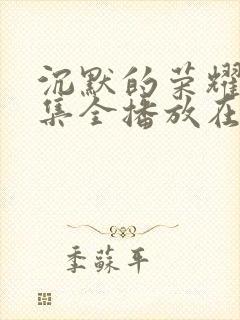 沉默的荣耀
集全播放在
季蘇平